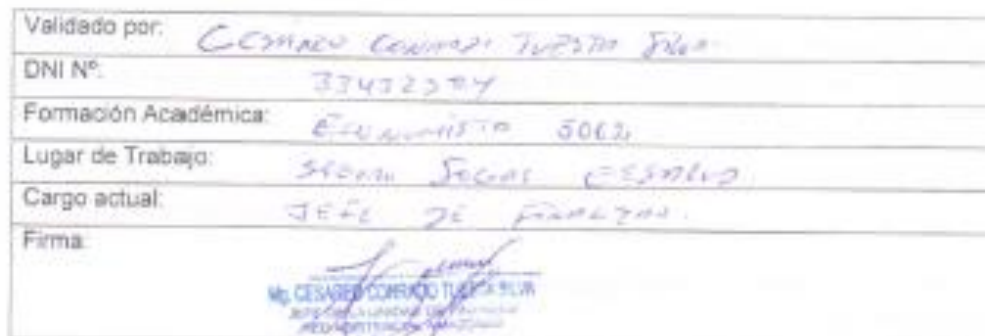 Validado por: CESAREO CONRADO TUESTA SILVA
DNI Nº:
Formación Académica: ECONOMISTA
Lugar de Trabajo: SEGURO SOCIAL ESSALUD
Cargo actual: JEFE DE FINANZAS.
Firma:
Mg. CESAREO CONRADO TUESTA SILVA
JEFE DE LA UNIDAD DE